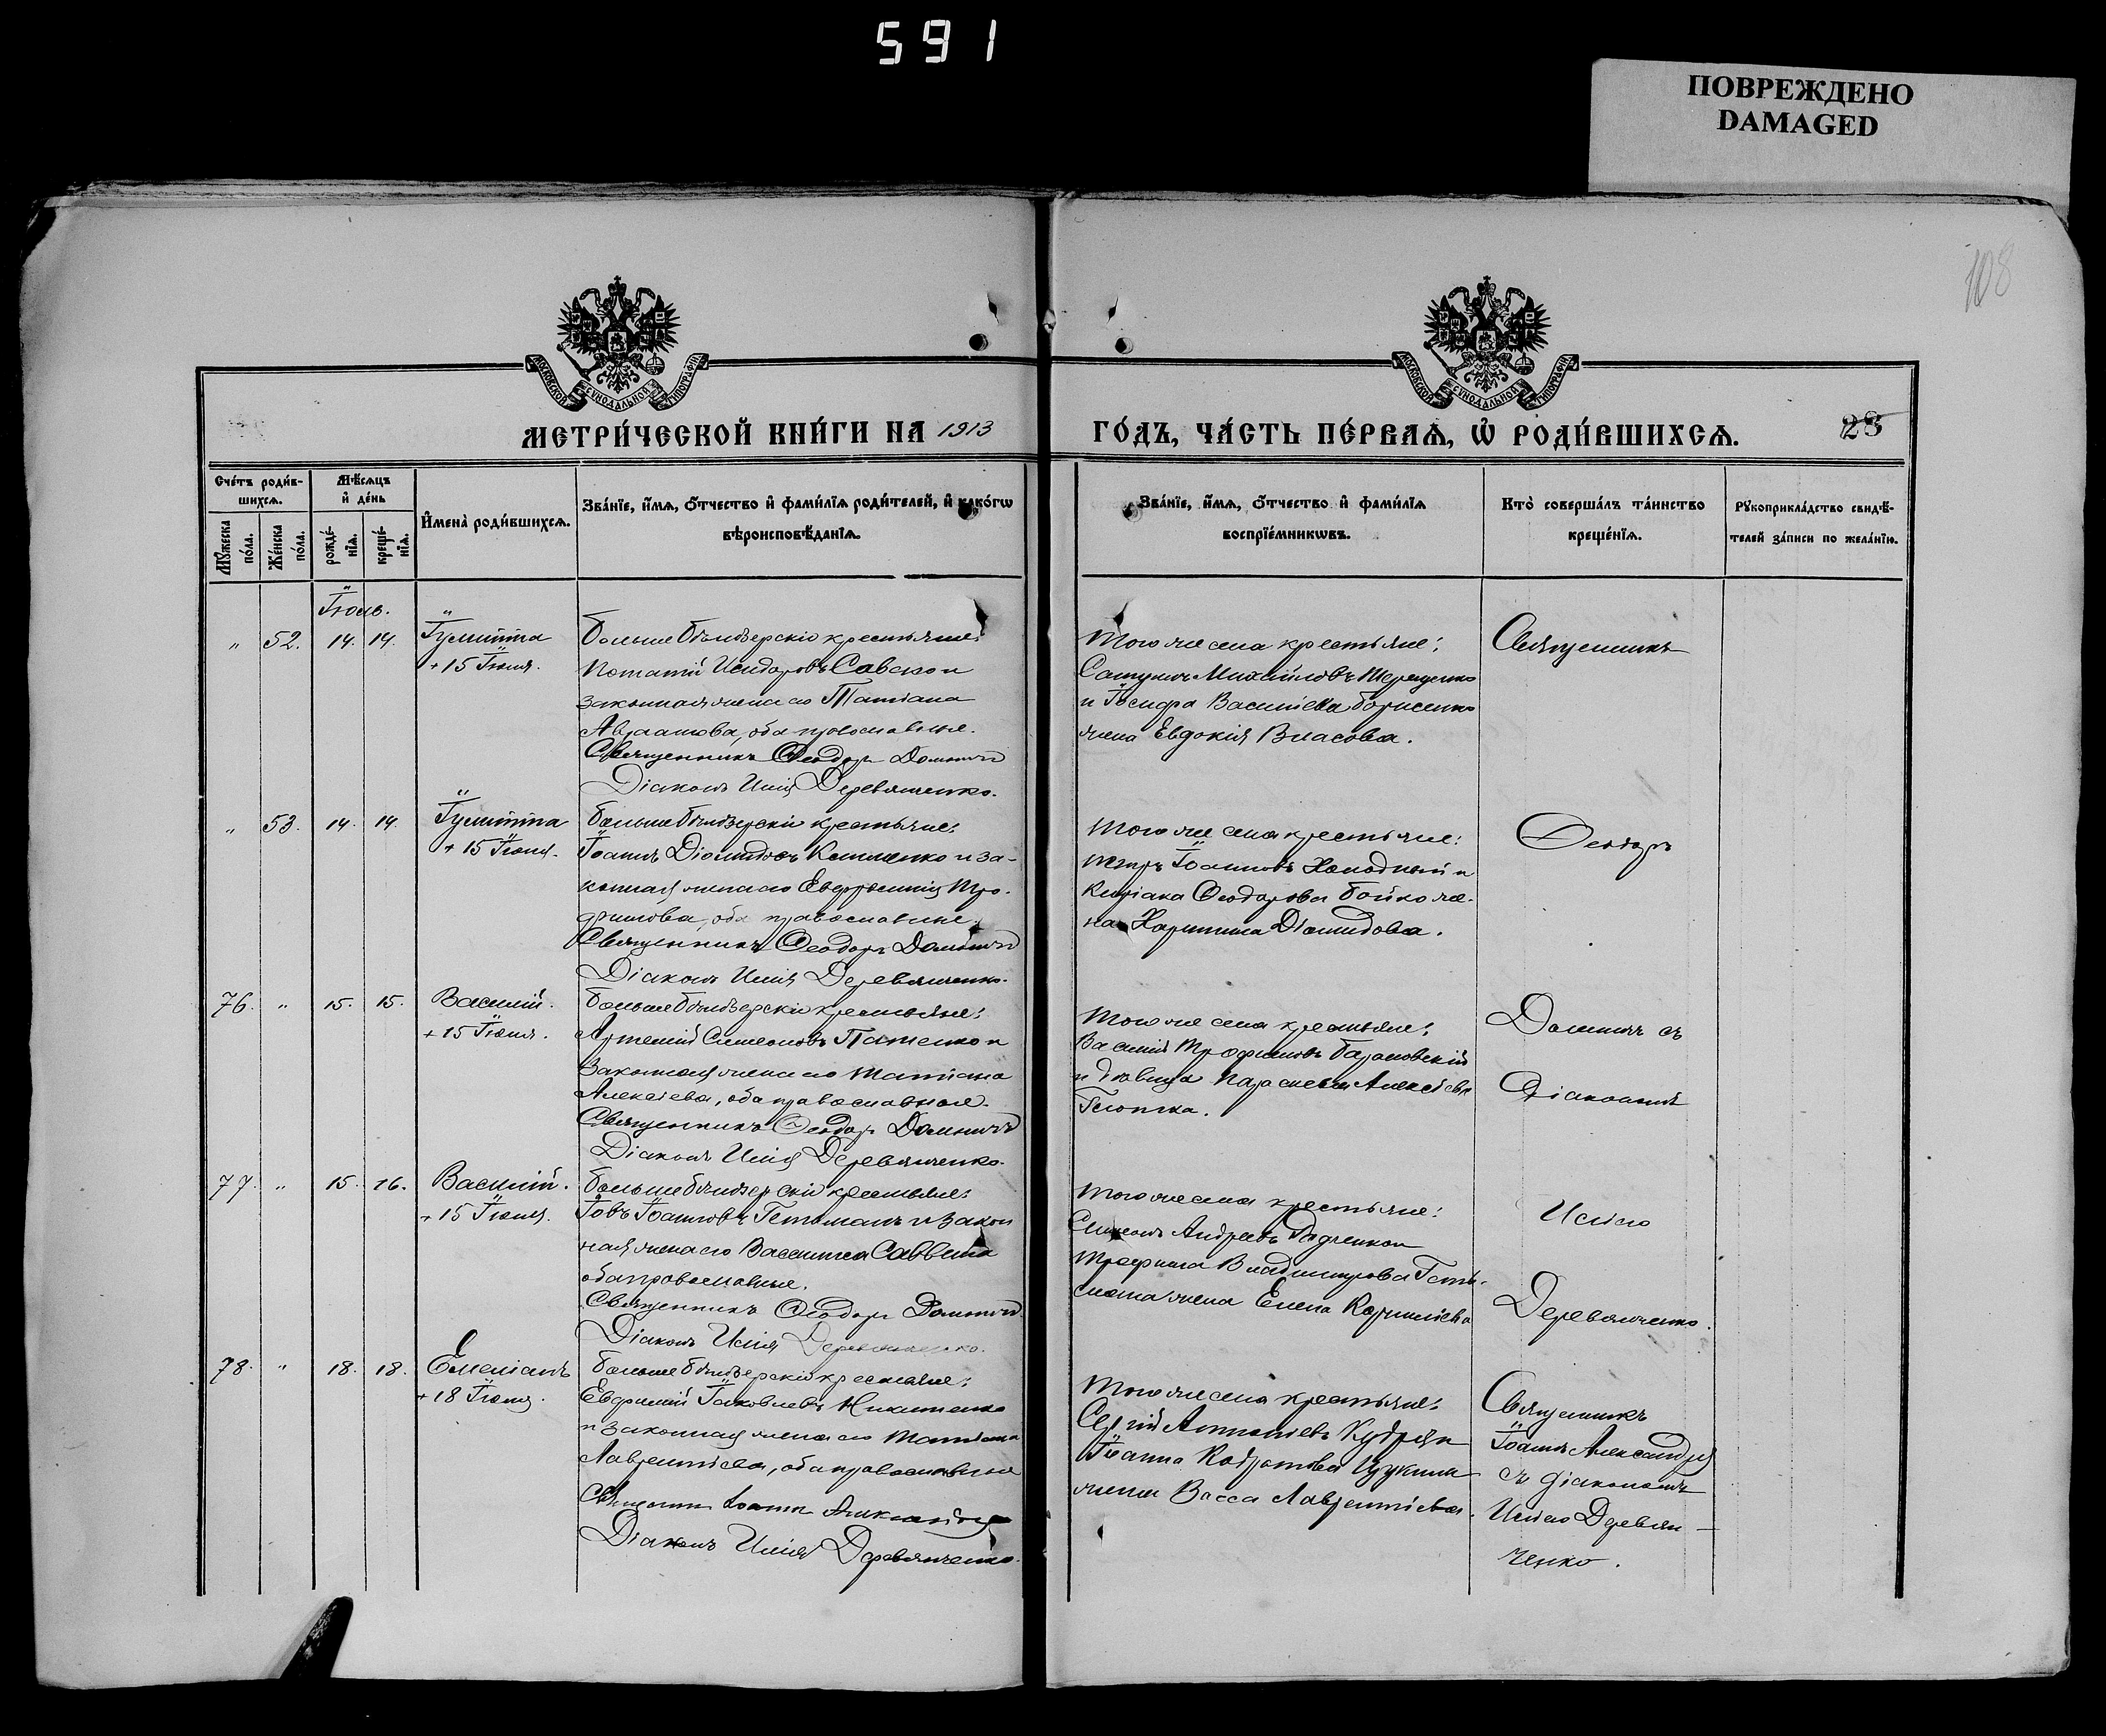 591
ПОВРЕЖДЕНО
DAMAGED
108
МОСКОВСКОЙ СѴНОДАЛЬНОЙ ТИПОГРАФІИ
МОСКОВСКОЙ СѴНОДАЛЬНОЙ ТИПОГРАФІИ
МЕТРИ́ЧЕСКОЙ КНИ́ГИ НА 1913
ГО́ДЪ, ЧА́СТЬ ПЕ́РВАѦ, Ѡ РОДИ́ВШИХСѦ.
28
Сче́тъ роди́в-
шихсѧ.
Мѣ́сѧцъ
и҆ де́нь
Мꙋ́жеска
по́ла.
Же́нска
по́ла.
рожде́-
нїѧ.
креще́-
нїѧ.
И҆мена̀ роди́вшихсѧ.
Зва́нїе, и҆́мѧ, ѻ҆́тчество и҆ фами́лїѧ роди́телей, и҆ како́гѡ
вѣроисповѣ́данїѧ.
Зва́нїе, и҆́мѧ, ѻ҆́тчество и҆ фами́лїѧ
воспрїе́мникѡвъ.
Кто̀ соверша́лъ та́инство
креще́нїѧ.
Рꙋкоприкла́дство свидѣ́-
телей за́писи по жела́нїю.
Іюль.
" 52. 14. 14. Іулитта
+ 15 Іюля.
Больше Бѣлозерскіе крестьяне:
Исидоровъ Савско и
законная жена его Татіана
Авраамова, оба православные.
Священникъ Ѳеодоръ
Діаконъ Илія Деревянченко.
Того же села крестьяне:
Михаиловъ Терещенко
и Іосифа Василіева Борисенко
жена Евдокія Власова.
Священникъ
" 53. 14. 14. Іулитта
+ 15 Іюля.
Больше Бѣлозерскіе крестьяне:
Іоаннъ Діомидовъ и за-
конная жена его Евфросинія Тро-
фимова, оба православные.
Священникъ Ѳеодоръ
Діаконъ Илія Деревянченко.
Того же села крестьяне:
Петръ Іоанновъ Холодный и
Киріака Ѳеодорова Бойко же-
на Харитина Діомидова.
Ѳеодоръ
76. " 15. 15. Василій.
+ 15 Іюля.
Больше Бѣлозерскіе крестьяне:
Артемій Симеоновъ Патенко и
законная жена его Татіана
Алексіева, оба православные.
Священникъ Ѳеодоръ
Діаконъ Илія Деревянченко.
Того же села крестьяне:
Василій Трофимовъ Барановскій
и дѣвица Параскева Алексіева
съ
Діакономъ
77. " 15. 16. Василій.
+ 15 Іюля.
Больше Бѣлозерскіе крестьяне:
Іовъ Іоанновъ Гетьманъ и закон
ная жена его Василиса Саввина
оба православные.
Священникъ Ѳеодоръ
Діаконъ Илія Деревянченко.
Того же села крестьяне:
Симеонъ Андреевъ Радченко и
Трофима Владимирова Геть-
мана жена Елена Корниліева
Иліею
Деревянченко.
78. " 18. 18. Емеліанъ
+ 18 Іюля.
Больше Бѣлозерскіе крестьяне:
Евфимій Іаковлевъ Никитенко
и законная жена его Татіана
Лаврентіева, оба православные
Священникъ Іоаннъ
Діаконъ Илія Деревянченко.
Того же села крестьяне:
Сергій Антоніевъ Кудря и
Іоанна Кодратова
жена Васса Лаврентіева.
Священникъ
Іоаннъ
съ діакономъ
Иліею Деревян-
ченко.